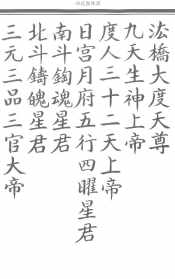 法橋大度天尊
九天生神上帝
度人三十二天上帝
日宮月府五行四曜星君
南斗鉤魂星君
北斗鑄魄星君
三元三品三官大帝